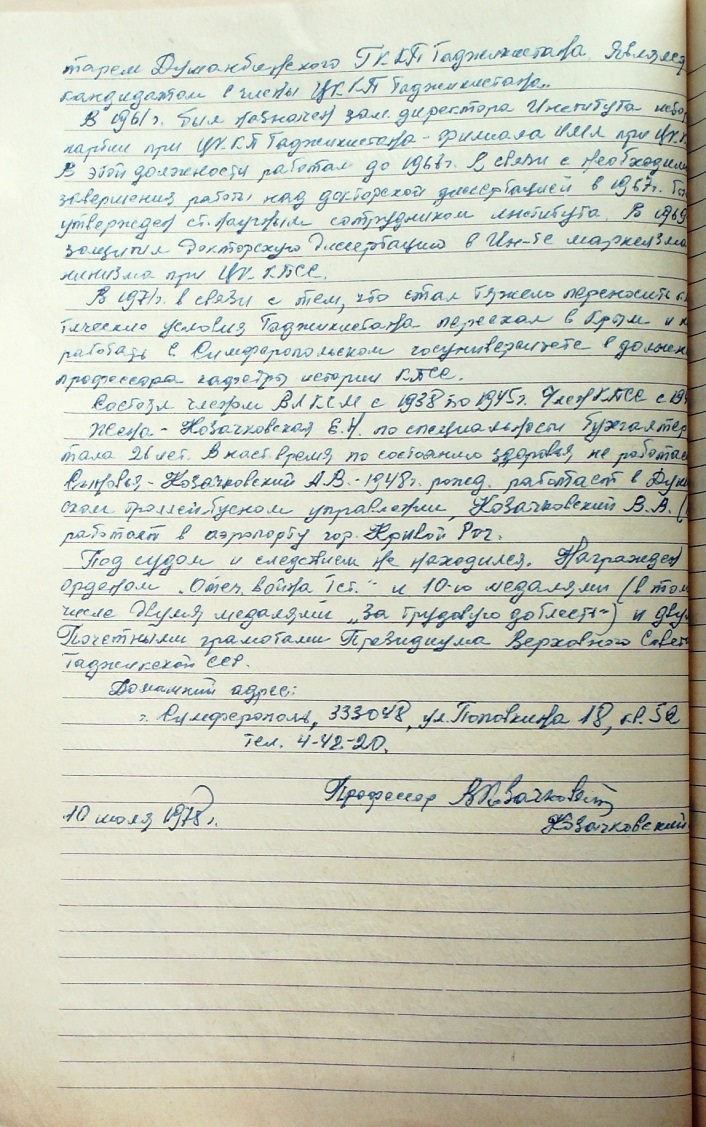 тарем Душанбинского ГК КП Таджикистана. Являлся
кандидатом в члены ЦК КП Таджикистана.
В 1961г. был назначен зам. директора Института исто
партии при ЦК КП Таджикистана - филиала ИМЛ при ЦК К
В этой должности работал до 1968г. В связи с необходим
завершения работы над докторской диссертацией в 1967г. б
утвержден ст. научным сотрудником института. В 1969
защитил докторскую диссертацию в Ин-те марксизма
нинизма при ЦК КПСС.
В 1971г. в связи с тем, что стал тяжело переносить
тические условия Таджикистана переехал в Крым и
работать в Симферопольском госуниверситете в должн
профессора кафедры истории КПСС.
Состоял членом ВЛКСМ с 1938 по 1945г. Член КПСС с 19
Жена - Козачковская Е.Н. по специальности бухгалтер
тала 26 лет. В наст. время по состоянию здоровья не работае
Сыновья - Козачковский А.В. - 1948г. рожд. работает в Душ
ском троллейбусном управлении, Козачковский В.В. (
работает в аэропорту гор. Кривой Рог.
Под судом и следствием не находился. Награжден
орденом „Отеч. война I ст." и 10-ю медалями (в том
числе двумя медалями „За трудовую доблесть") и дву
Почетными грамотами Президиума Верховного Совет
Таджикской ССР.
Домашний адрес:
г. Симферополь, 333048, ул. Поповкина 18, кв. 52
Тел. 4-42-20.
Профессор ВКозачковский
10 июля 1978г.
Козачковский